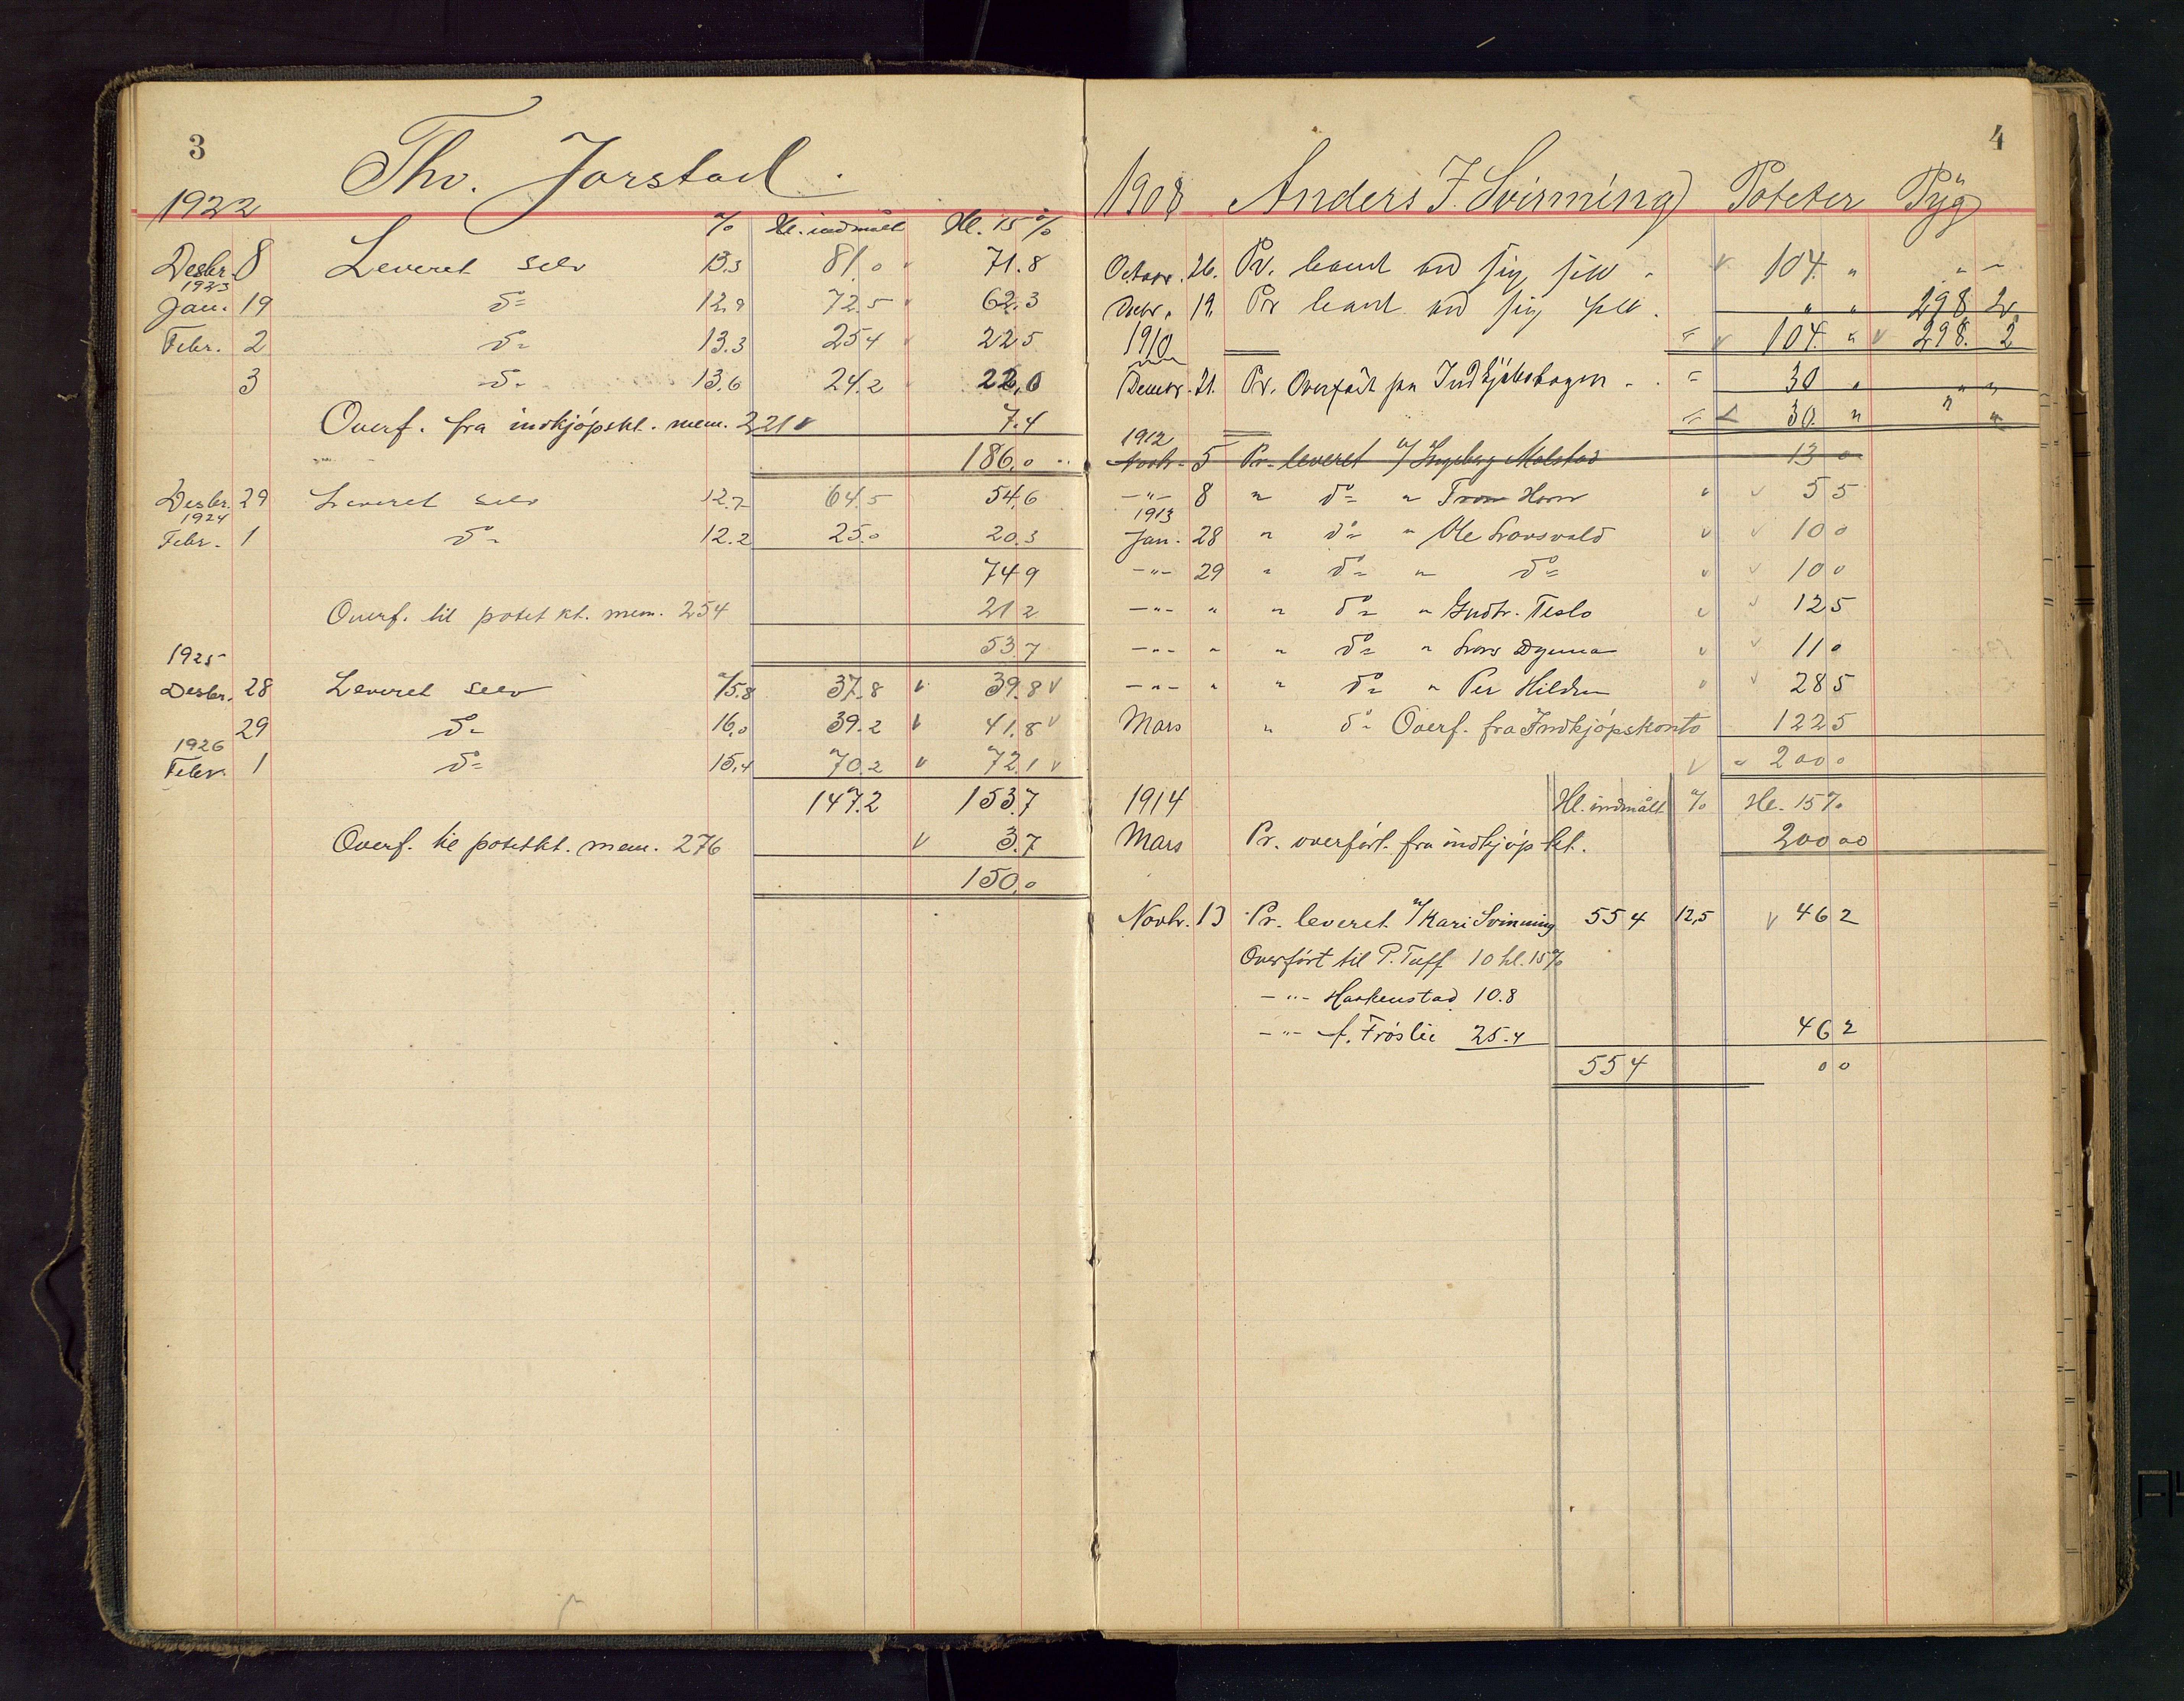 3
Thv. Jorstad.
1922
% Hl. indmålt Hl. 15%
Desbr. 8 Leveret selv 13.3 81.0 71.8
1923
Jan. 19 do 12.9 72.5 62.3
Febr. 2 do 13.3 25 4 22 5
3 do 13.6 24.2 22.0
Overf. fra indkjøpskt. mem. 221 7.4
186.0
Desbr. 29 Leveret selv 12.7 64.5 54.6
1924
Febr. 1 do 12.2 25.0 20.3
74 9
Overf. til potet kt. mem. 254 21 2
53.7
1925
Desbr. 28 Leveret selv 15.8 37.8 v 39.8 v
29 do 16.0 39.2 v 41.8 v
1926
Febr. 1 do 15.4 70.2 v 72.1 v
147.2 153.7
Overf. til potetkt. mem. 276 v 3.7
150.0
4
1908 Anders J. Svinning Poteter Byg
Octobr. 26. Pr. levert ved sig selv. v 104. " " –
Decbr. 19. Pr levert ved sig selv. " " 298 2
1910 = v 104. " v 298. 2
Decbr. 21. Pr. Overført fra Indkjøbsbogen = 30 " " "
= 30. " " "
1912
Novbr. 5 Pr. leveret a/ Ingeborg Molstad 13 0
–"– 8 " do " Tron Horn v 5 5
1913
Jan. 28 " do " Ole Lausvold v 10 0
–"– 29 " do " do v 10 0
–"– " " do " Gudbr. Teslo v 12 5
–"– " " do " Lars Dynna v 11 0
–"– " " do " Per Hilden v 28 5
Mars " do Overf. fra Indkjøpskonto 122 5
v " 200 0
1914 Hl. indmålt % Hl. 15%
Mars Pr. overført fra indkjøpkt. 200 00
Novbr. 13 Pr. leveret a/ Kari Svinning 55 4 12,5 v 46 2
Overført til P. Tuff 10 hl. 15%
–"– Haakenstad 10.8
–"– A. Frøslie 25.4 46 2
55 4 0 0